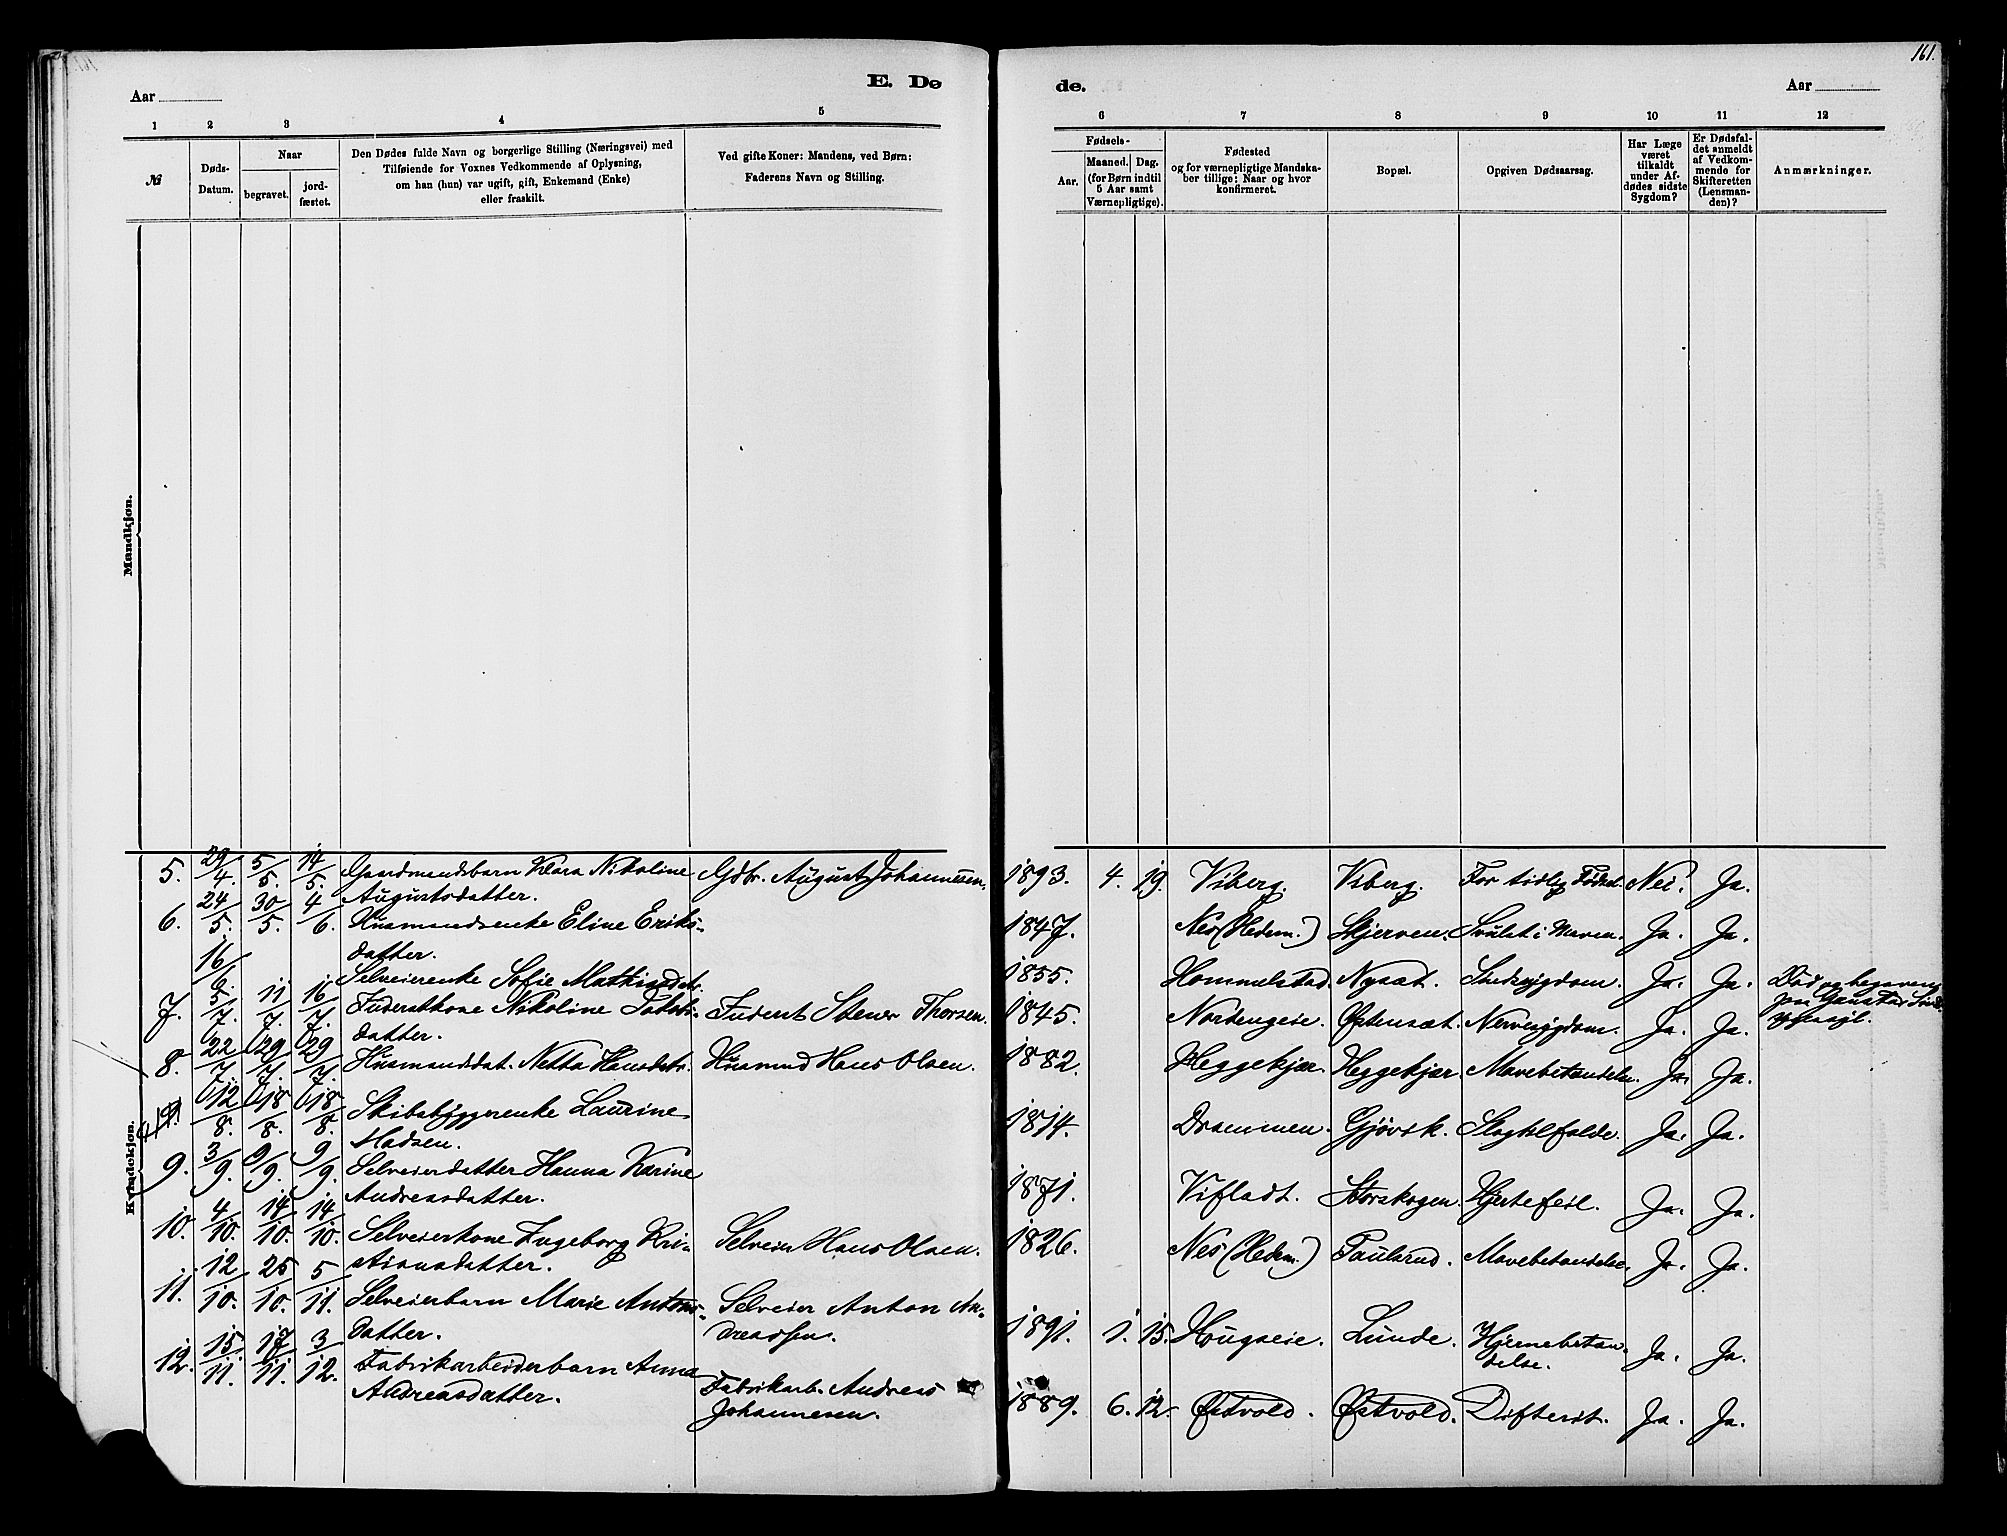 161.
Aar
E. Dø
de.
Aar
1 2 3 4 5
6 7 8 9 10 11 12
№
Døds-
Datum.
Naar
begravet.
jord-
fæstet.
Den Dødes fulde Navn og borgerlige Stilling (Næringsvei) med
Tilføiende for Voxnes Vedkommende af Oplysning,
om han (hun) var ugift, gift, Enkemand (Enke)
eller fraskilt.
Ved gifte Koner: Mandens, ved Børn:
Faderens Navn og Stilling.
Fødsels-
Aar.
Maaned.
Dag.
(for Børn indtil
5 Aar samt
Værnepligtige).
Fødested
og for værnepligtige Mandska-
ber tillige: Naar og hvor
konfirmeret.
Bopæl.
Opgiven Dødsaarsag.
Har Læge
været
tilkaldt
under Af-
dødes sidste
Sygdom?
Er Dødsfal-
det anmeldt
af Vedkom-
mende for
Skifteretten
(Lensman-
den)?
Anmærkninger.
Mandkjøn.
Kvindekjøn.
5. 29/4. 5/5. 14/5. Gaardmandsbarn Klara Nikoline
Augustsdatter.
Gdbr. August Johannessen.
1893. 4. 19. Viberg. Viberg. For tidlig Fødsel. Nei. Ja.
6. 24/5. 30/5. 4/6. Husmandsenke Eline Eriks-
datter.
1847. Nes (Hedem.) Skjerven. Svulst i Maven. Ja. Ja.
16/6. Selveierenke Sofie Mathisdtr.
1855. Hommelstad. Nysæt. Sindssygdom. Ja. Ja. Død og begraven
paa Gaustad Sinds
sygeasyl.
7. 5/7. 11/7. 16/7. Inderstkone Nikoline Jakobs-
datter.
Inderst Stener Thorsen.
1845. Nordengeie. Østensæt. Nervesygdom. Ja. Ja.
8. 22/7. 29/7. 29/7. Husmandsdat. Netta Hansdtr.
Husmand Hans Olsen.
1882. Heggekjær. Heggekjær. Mavebetændelse. Ja. Ja.
12/8. 18/8. 18/8. Skibsbyggerenke Laurine
Madsen.
1814. Drammen. Gjøvik. Slagtilfælde. Ja. Ja.
9. 3/9. 9/9. 9/9. Selveierdatter Hanna Karine
Andreasdatter.
1871. Vifladt. Storskogen. Hjertefeil. Ja. Ja.
10. 4/10. 14/10. 14/10. Selveierkone Ingeborg Kri-
stiansdatter.
Selveier Hans Olsen.
1826. Nes (Hedem.) Paulsrud. Mavebetændelse. Ja. Ja.
11. 12/10. 25/10. 5/11. Selveierbarn Marie Antons-
datter.
Selveier Anton An-
dreassen.
1891. 1. 15. Hougseie. Lunde. Hjernebetæn-
delse. Ja. Ja.
12. 15/11. 17/11. 3/12. Fabrikarbeiderbarn Anna
Andreasdatter.
Fabrikarb. Andreas
Johannesen.
1889. 6. 12. Østvold. Østvold. Difterit. Ja. Ja.